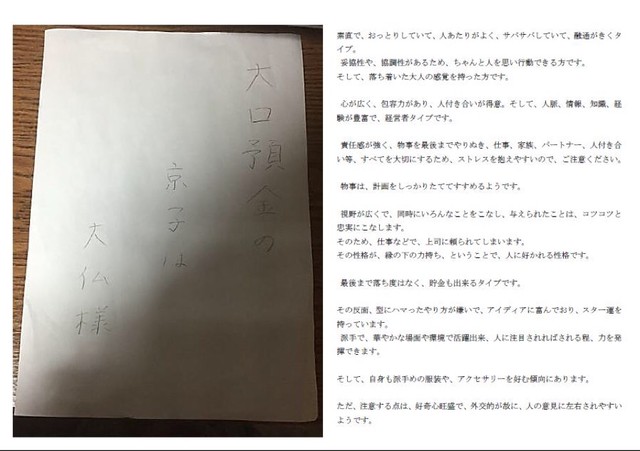 大口預金の
京子は
大仏様
素直で、おっとりしていて、人あたりがよく、サバサバしていて、融通がきくタ
イプ。
妥協性や、協調性があるため、ちゃんと人を思い行動できる方です。
そして、落ち着いた大人の感覚を持った方です。
心が広く、包容力があり、人付き合いが得意。そして、人脈、情報、知識、経
験が豊富で、経営者タイプです。
責任感が強く、物事を最後までやりぬき、仕事、家族、パートナー、人付き合
い等、すべてを大切にするため、ストレスを抱えやすいので、ご注意ください。
物事は、計画をしっかりたててすすめるようです。
視野が広くて、同時にいろんなことをこなし、与えられたことは、コツコツと
忠実にこなします。
そのため、仕事などで、上司に頼られてしまいます。
その性格が、縁の下の力持ち、ということで、人に好かれる性格です。
最後まで落ち度はなく、貯金も出来るタイプです。
その反面、型にハマったやり方が嫌いで、アイディアに富んでおり、スター運を
持っています。
派手で、華やかな場面や環境で活躍出来、人に注目されればされる程、力を発
揮できます。
そして、自身も派手めの服装や、アクセサリーを好む傾向にあります。
ただ、注意する点は、好奇心旺盛で、外交的が故に、人の意見に左右されやすい
ようです。